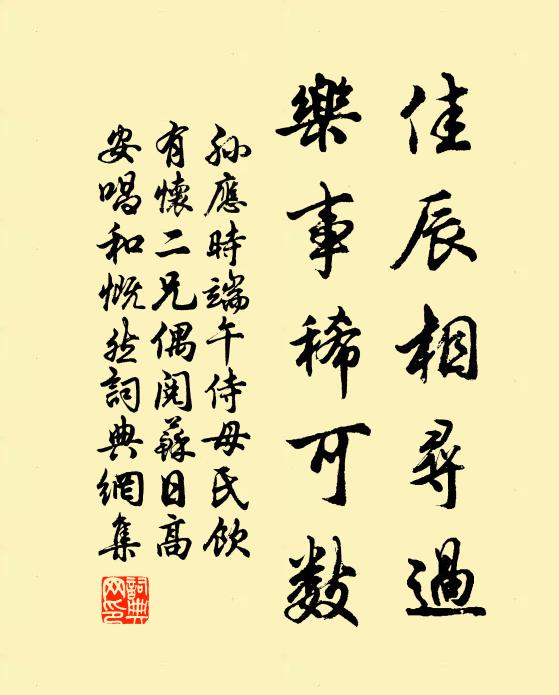 佳辰相尋過
樂事稀可數
孫應時端午侍母氏飲
有懷二兄偶閱蘇日高
安唱和慨然詞典網集
詞典
网印